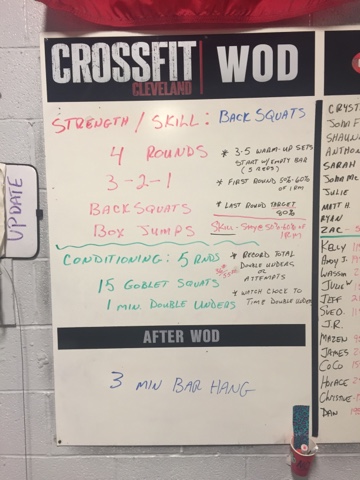 CROSSFIT WOD
CLEVELAND
STRENGTH / SKILL: BACK SQUATS
4 ROUNDS
3-2-1
BACK SQUATS
BOX JUMPS
* 3-5 WARM-UP SETS
START W/ EMPTY BAR
* FIRST ROUND 50%-60%
OF 1RM
* LAST ROUND TARGET
80%
Skill - Stay @ 50%-60% of
1RM
CONDITIONING: 5 RNDS
15 GOBLET SQUATS
1 MIN. DOUBLE UNDERS
* RECORD TOTAL
DOUBLE UNDERS
OR
ATTEMPTS
* WATCH CLOCK TO
TIME DOUBLE UNDERS
AFTER WOD
3 MIN BAR HANG
UPDATE
CRYST
JOHN F
SHAUN
ANTHON
SARAH
JOHN MC
JULIE
MATT H.
RYAN
ZAC
KELLY
ANDY J.
WATSON
JULIE W
JEFF
SUE D.
J.R.
MAZEN
JAMES
COCO
HORACE
CHRISTLE
DAN